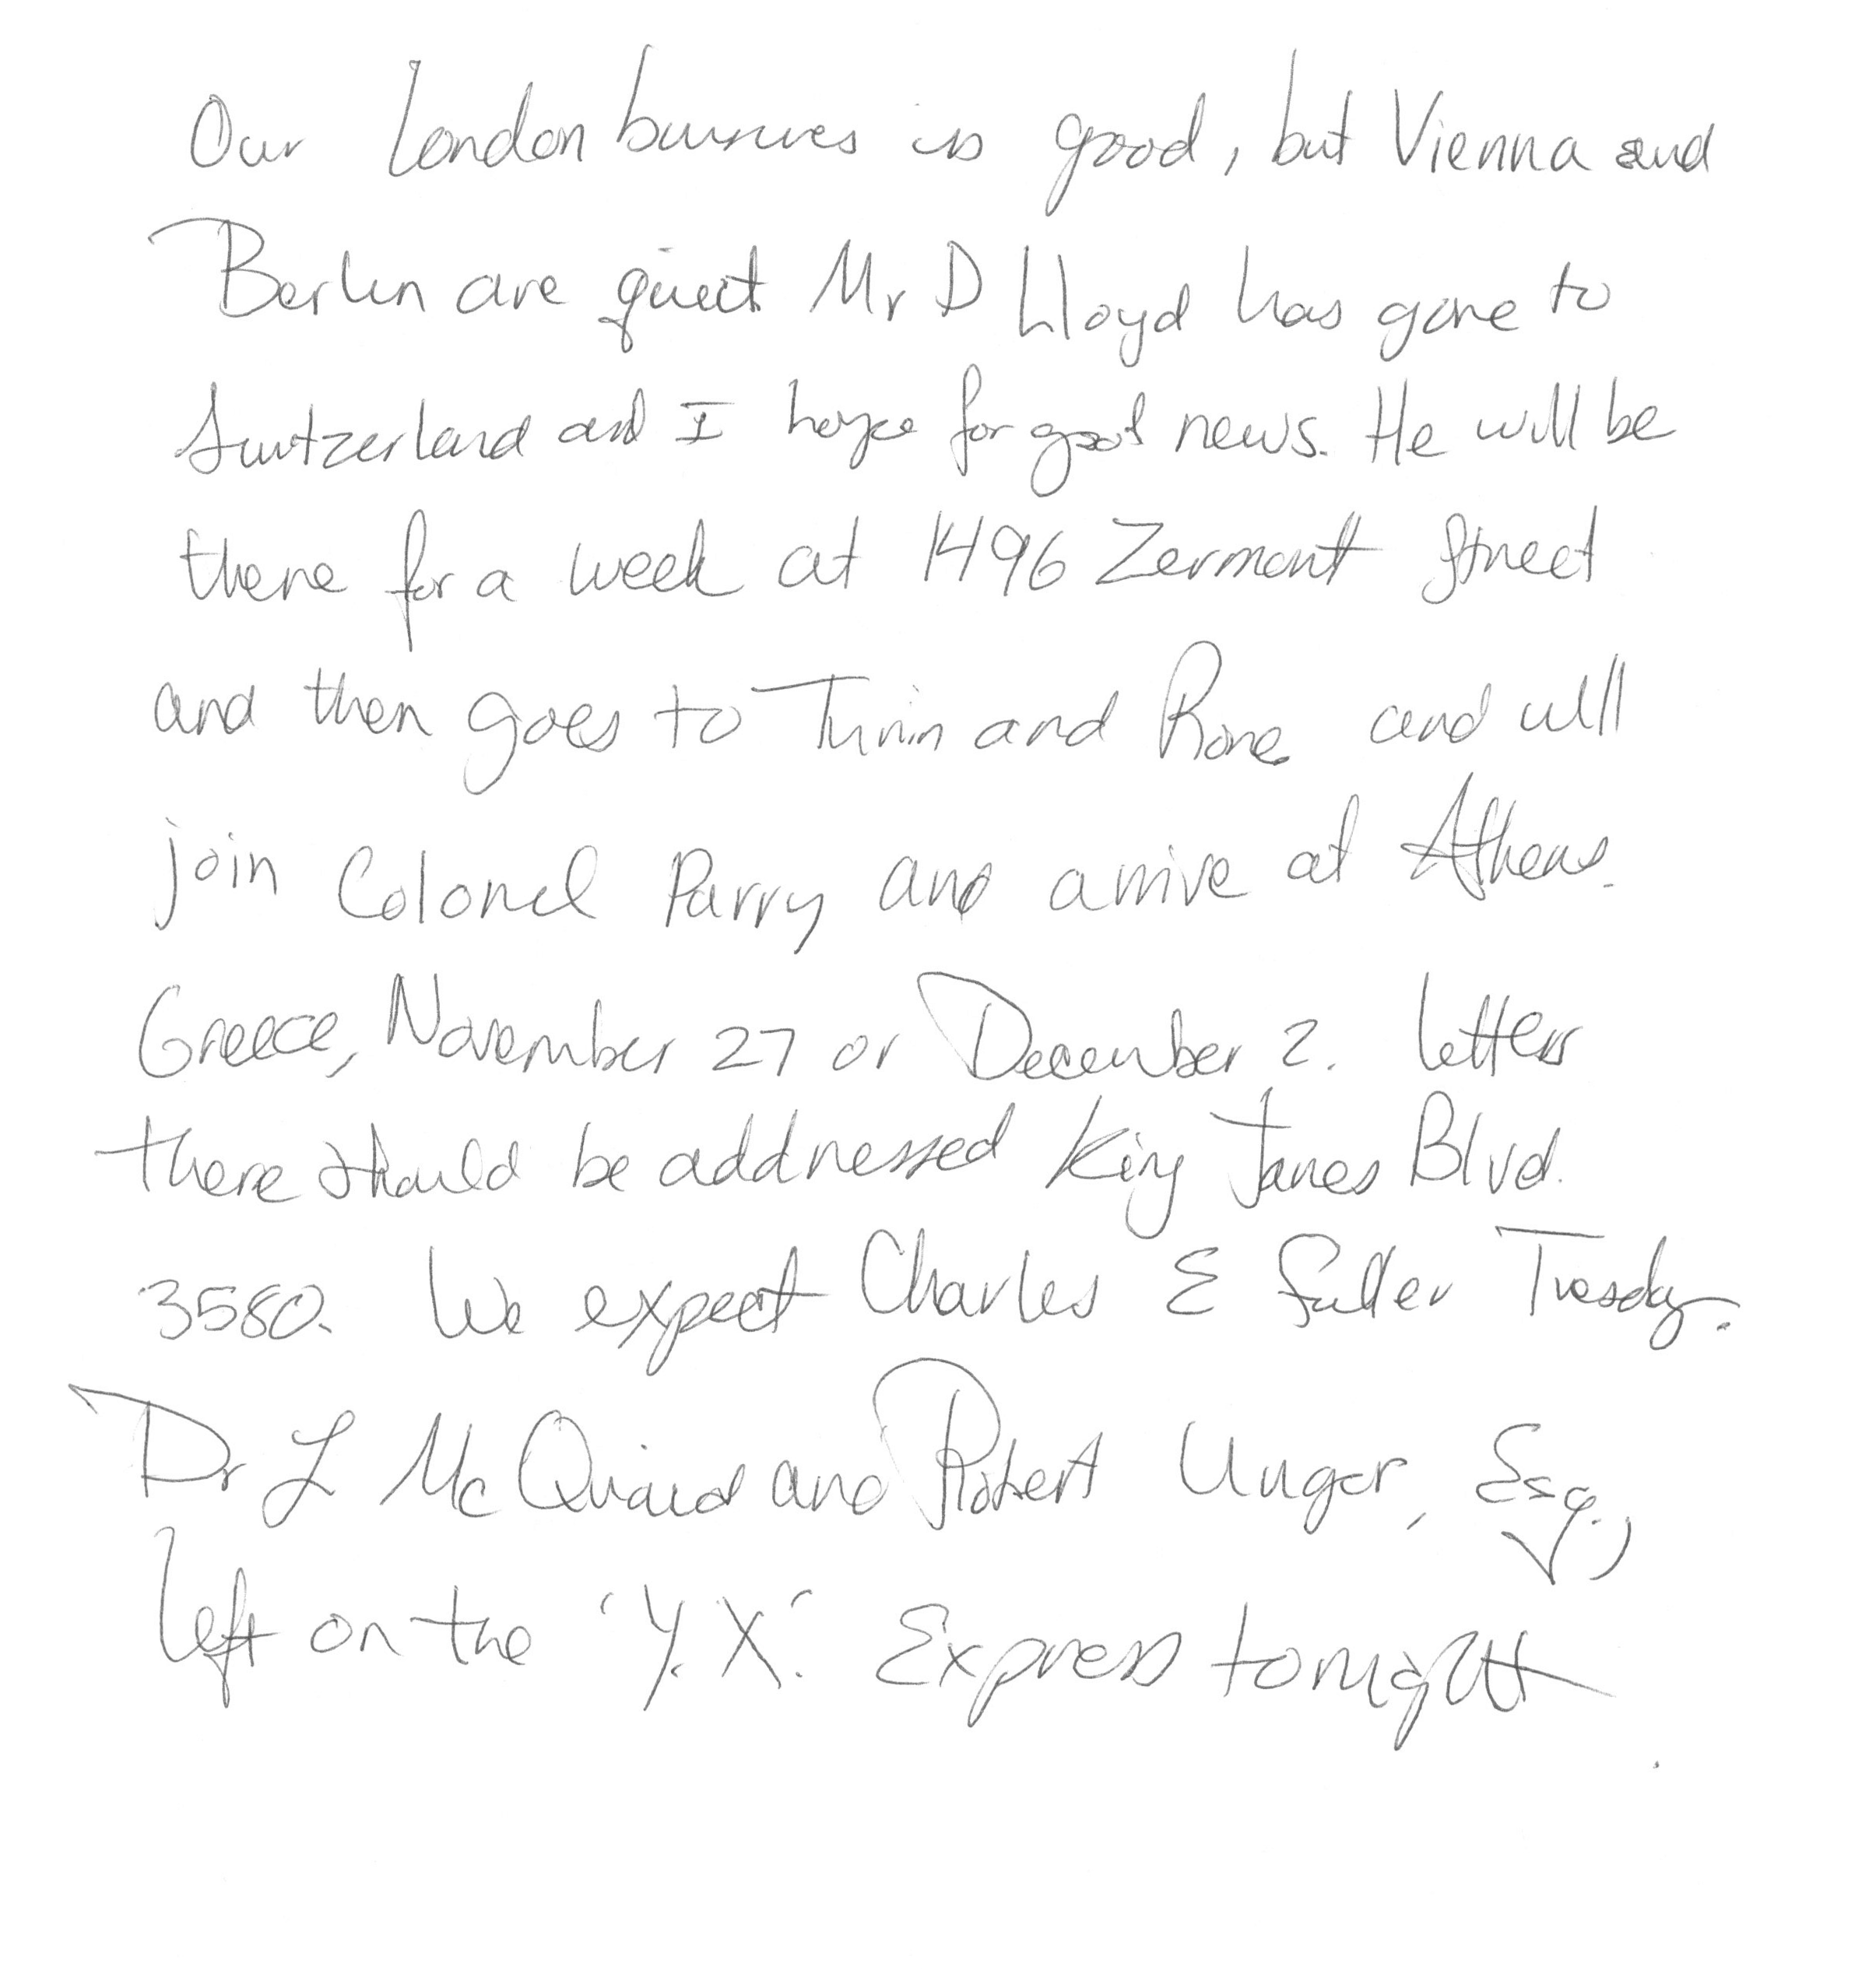 Our London business is good, but Vienna and
Berlin are quiet. Mr D Lloyd has gone to
Switzerland and I hope for good news. He will be
there for a week at 1496 Zermont Street
and then goes to Turin and Rome and will
join Colonel Parry and arrive at Athens.
Greece, November 27 or December 2. Letters
there should be addressed King James Blvd.
3580. We expect Charles E Fuller Tuesday.
Dr L McQuaid and Robert Unger, Esq.,
left on the 'Y.X.' Express tonight